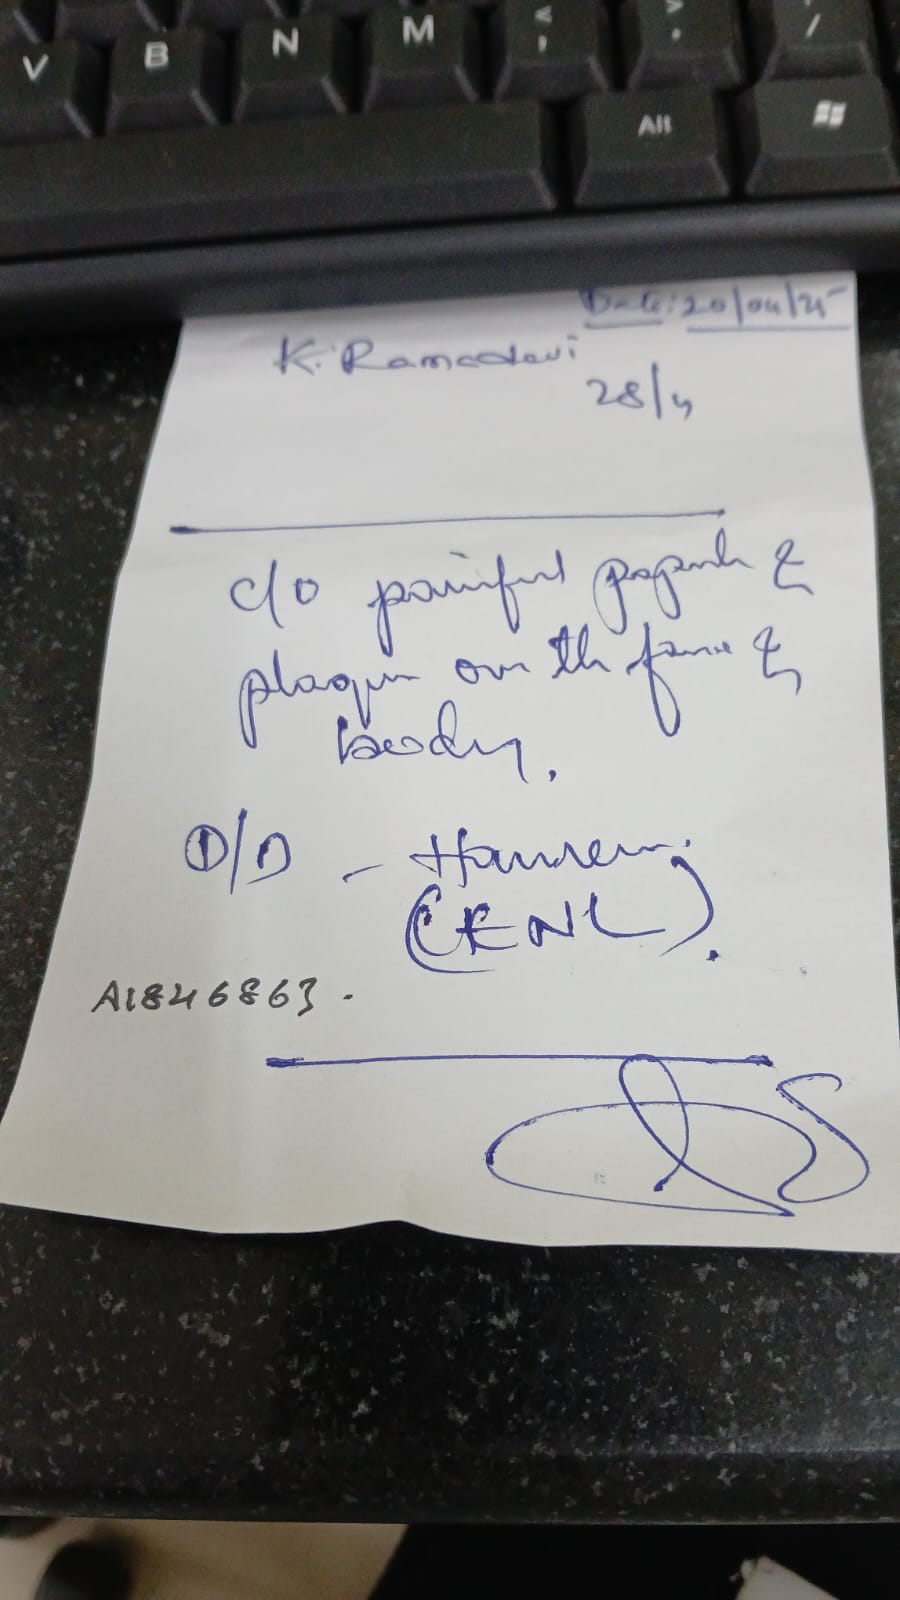 V B N M < , > . /
Alt
Date: 20/04/25
K. Ramadevi
28/y
c/o painful papules &
plaques over the face &
body.
D/D - Hansen
(ENL).
A1846863.